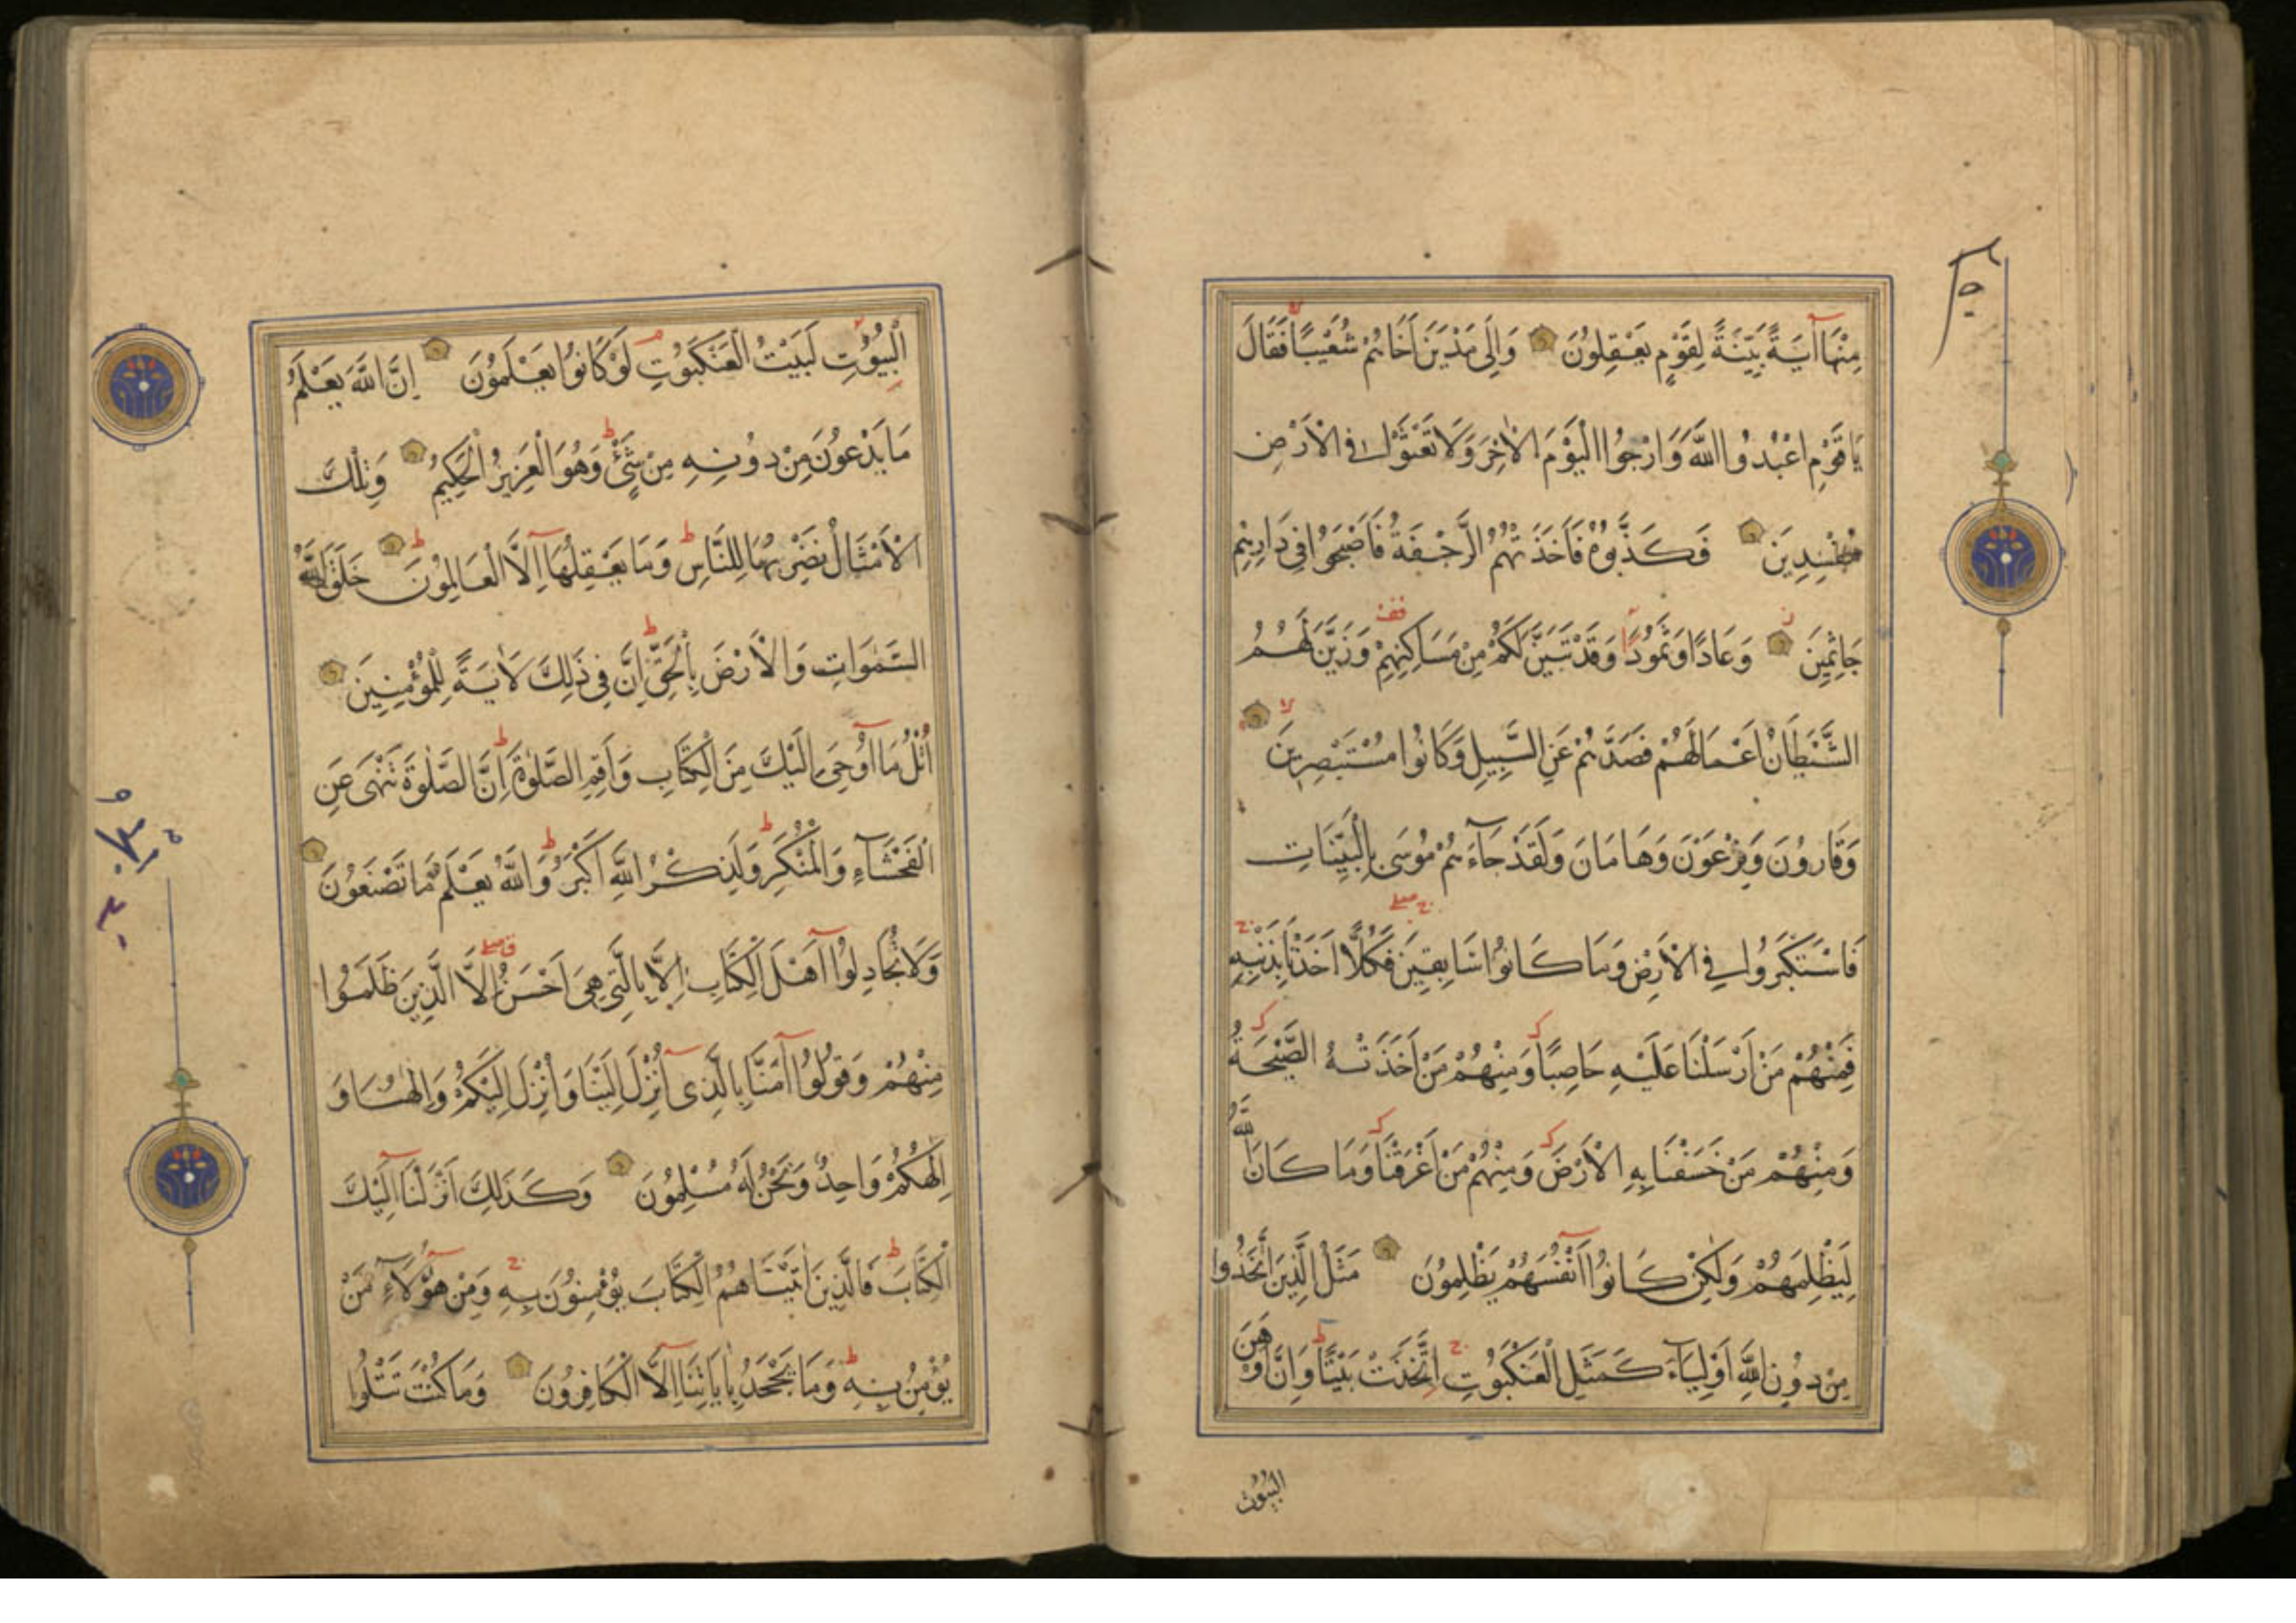 مِنْهَا آيَةً بَيِّنَةً لِقَوْمٍ يَعْقِلُونَ وَإِلَى مَدْيَنَ أَخَاهُمْ شُعَيْبًا فَقَالَ
يَا قَوْمِ اعْبُدُوا اللَّهَ وَارْجُوا الْيَوْمَ الْآخِرَ وَلَا تَعْثَوْا فِي الْأَرْضِ
مُفْسِدِينَ فَكَذَّبُوهُ فَأَخَذَتْهُمُ الرَّجْفَةُ فَأَصْبَحُوا فِي دَارِهِمْ
جَاثِمِينَ وَعَادًا وَثَمُودًا وَقَدْ تَبَيَّنَ لَكُمْ مِنْ مَسَاكِنِهِمْ وَزَيَّنَ لَهُمُ
الشَّيْطَانُ أَعْمَالَهُمْ فَصَدَّهُمْ عَنِ السَّبِيلِ وَكَانُوا مُسْتَبْصِرِينَ
وَقَارُونَ وَفِرْعَوْنَ وَهَامَانَ وَلَقَدْ جَاءَهُمْ مُوسَى بِالْبَيِّنَاتِ
فَاسْتَكْبَرُوا فِي الْأَرْضِ وَمَا كَانُوا سَابِقِينَ فَكُلًّا أَخَذْنَا بِذَنْبِهِ
فَمِنْهُمْ مَنْ أَرْسَلْنَا عَلَيْهِ حَاصِبًا وَمِنْهُمْ مَنْ أَخَذَتْهُ الصَّيْحَةُ
وَمِنْهُمْ مَنْ خَسَفْنَا بِهِ الْأَرْضَ وَمِنْهُمْ مَنْ أَغْرَقْنَا وَمَا كَانَ اللَّهُ
لِيَظْلِمَهُمْ وَلَكِنْ كَانُوا أَنْفُسَهُمْ يَظْلِمُونَ مَثَلُ الَّذِينَ اتَّخَذُوا
مِنْ دُونِ اللَّهِ أَوْلِيَاءَ كَمَثَلِ الْعَنْكَبُوتِ اتَّخَذَتْ بَيْتًا وَإِنَّ أَوْهَنَ
البيوت
الْبُيُوتِ لَبَيْتُ الْعَنْكَبُوتِ لَوْ كَانُوا يَعْلَمُونَ إِنَّ اللَّهَ يَعْلَمُ
مَا يَدْعُونَ مِنْ دُونِهِ مِنْ شَيْءٍ وَهُوَ الْعَزِيزُ الْحَكِيمُ وَتِلْكَ
الْأَمْثَالُ نَضْرِبُهَا لِلنَّاسِ وَمَا يَعْقِلُهَا إِلَّا الْعَالِمُونَ خَلَقَ اللَّهُ
السَّمَوَاتِ وَالْأَرْضَ بِالْحَقِّ إِنَّ فِي ذَلِكَ لَآيَةً لِلْمُؤْمِنِينَ
اتْلُ مَا أُوحِيَ إِلَيْكَ مِنَ الْكِتَابِ وَأَقِمِ الصَّلَوةَ إِنَّ الصَّلَوةَ تَنْهَى عَنِ
الْفَحْشَاءِ وَالْمُنْكَرِ وَلَذِكْرُ اللَّهِ أَكْبَرُ وَاللَّهُ يَعْلَمُ مَا تَصْنَعُونَ
وَلَا تُجَادِلُوا أَهْلَ الْكِتَابِ إِلَّا بِالَّتِي هِيَ أَحْسَنُ إِلَّا الَّذِينَ ظَلَمُوا
مِنْهُمْ وَقُولُوا آمَنَّا بِالَّذِي أُنْزِلَ إِلَيْنَا وَأُنْزِلَ إِلَيْكُمْ وَإِلَهُنَا وَ
إِلَهُكُمْ وَاحِدٌ وَنَحْنُ لَهُ مُسْلِمُونَ وَكَذَلِكَ أَنْزَلْنَا إِلَيْكَ
الْكِتَابَ فَالَّذِينَ آتَيْنَاهُمُ الْكِتَابَ يُؤْمِنُونَ بِهِ وَمِنْ هَؤُلَاءِ مَنْ
يُؤْمِنُ بِهِ وَمَا يَجْحَدُ بِآيَاتِنَا إِلَّا الْكَافِرُونَ وَمَا كُنْتَ تَتْلُوا